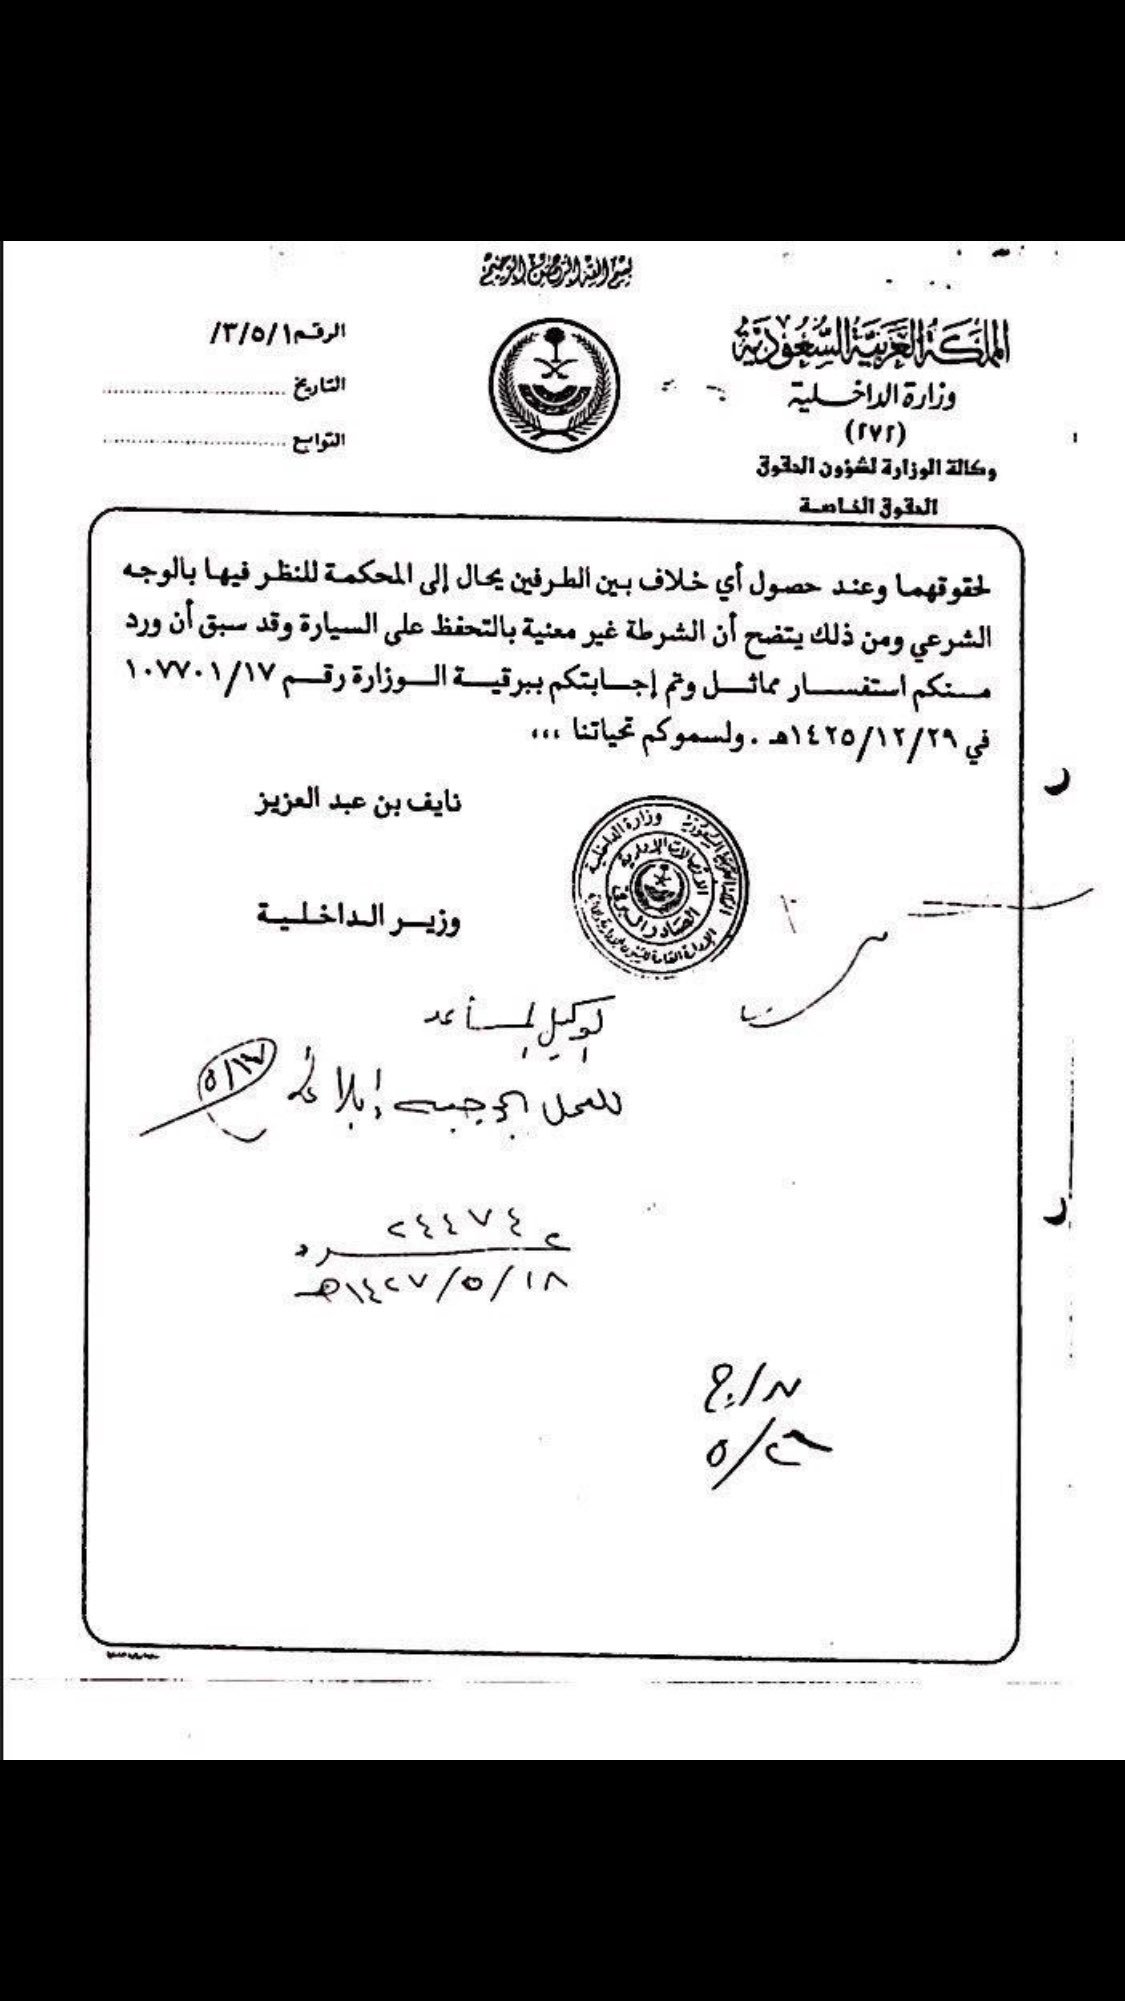 بسم الله الرحمن الرحيم
المملكة العربية السعودية
وزارة الداخلية
(٢٧٢)
وكالة الوزارة لشؤون الحقوق
الحقوق الخاصة
الرقم ٣/٥/١/
التاريخ
التوابع
لحقوقهما وعند حصول أي خلاف بين الطرفين يحال إلى المحكمة للنظر فيها بالوجه
الشرعي ومن ذلك يتضح أن الشرطة غير معنية بالتحفظ على السيارة وقد سبق أن ورد
منكم استفسار مماثل وتم إجابتكم ببرقية الوزارة رقم ١٠٧٧٠١/١٧
في ١٤٢٥/١٢/٢٩هـ . ولسموكم تحياتنا ،،،
نايف بن عبد العزيز
وزير الداخلية
وزارة الداخلية
الاتصالات الإدارية
الصادر السري
الوكيل المساعد
للعمل بموجبه إبلاغه
٥/١٧
٢٤٤٧٤
١٤٢٧/٥/١٨هـ
٥/٢٦